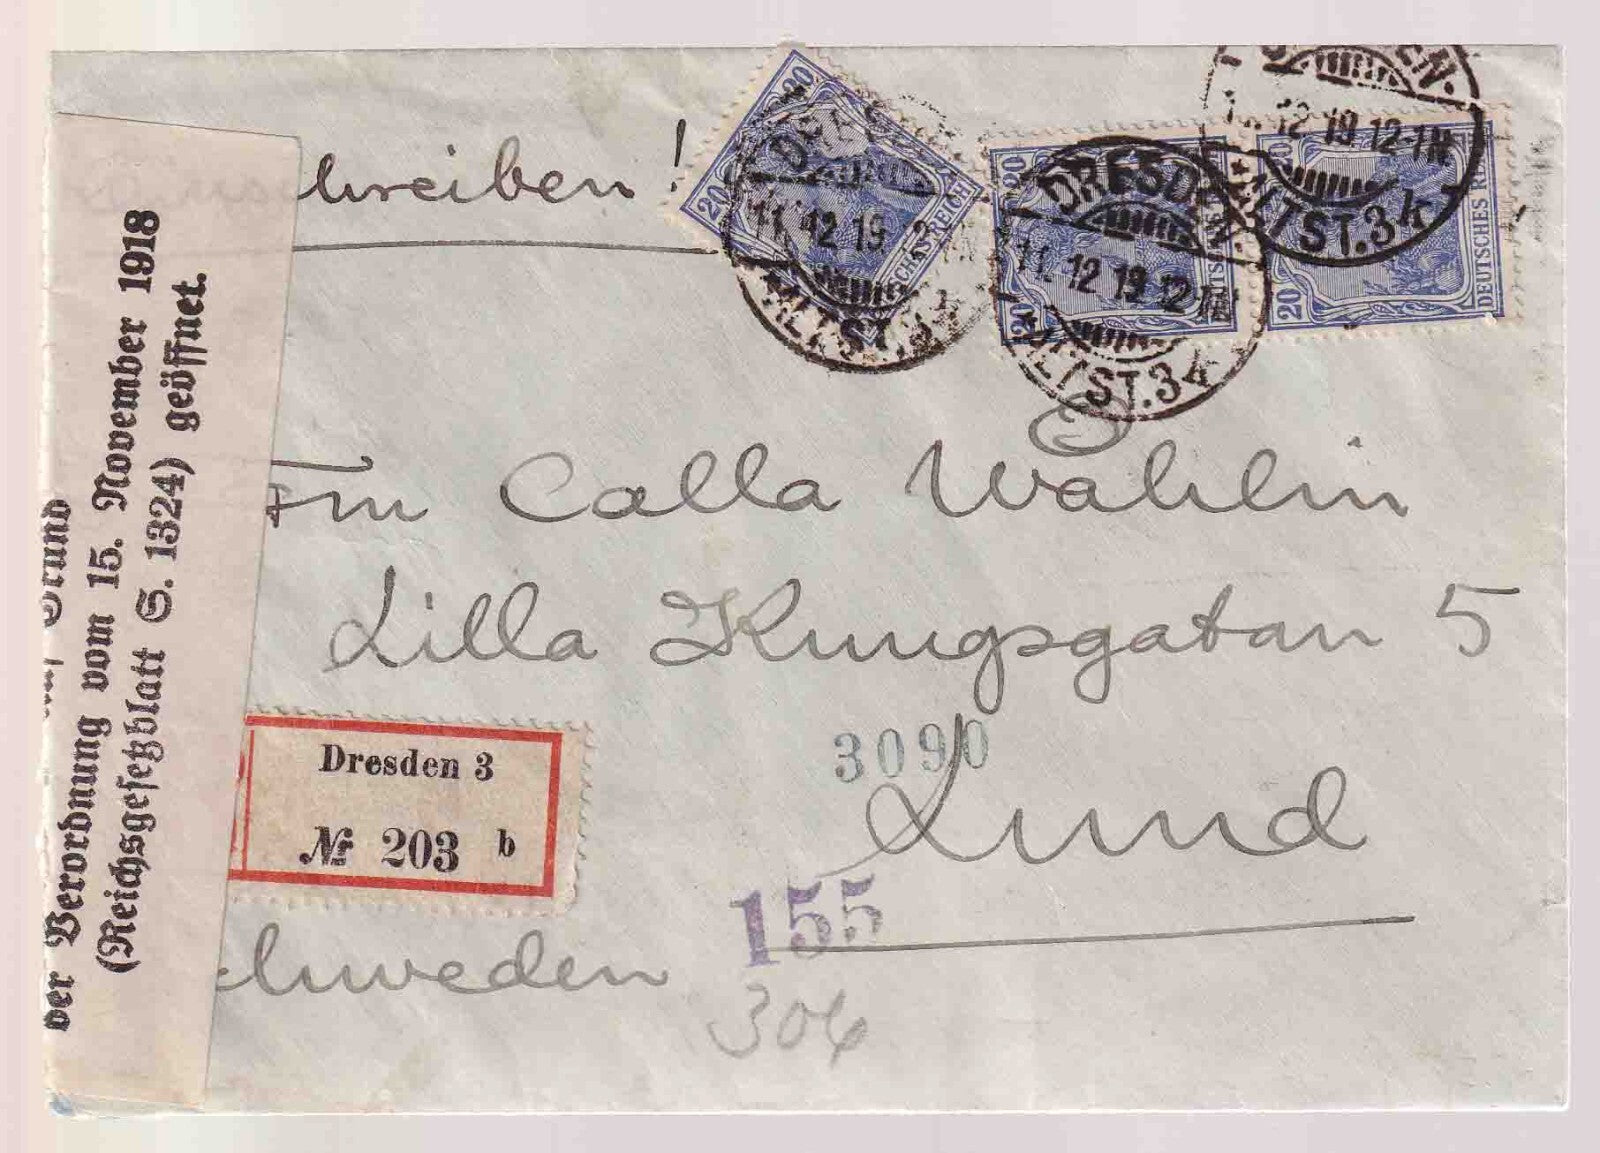 chreiben!
20 20 DEUTSCHES REICH
20 20 DEUTSCHES REICH
20 DEUTSCHES REICH
DRESDEN
11.12.19
ALTST.3
DRESDEN
11.12.19 12-1N
*ALTST.3k
12 19 12-1N
*ALTST.3k
Calla Wåhlin
Lilla Kungsgatan 5
Lund
chweden
3090
155
306
Dresden 3
Nr 203 b
Grund
der Verordnung vom 15. November 1918
(Reichsgesetzblatt S. 1324) geöffnet.